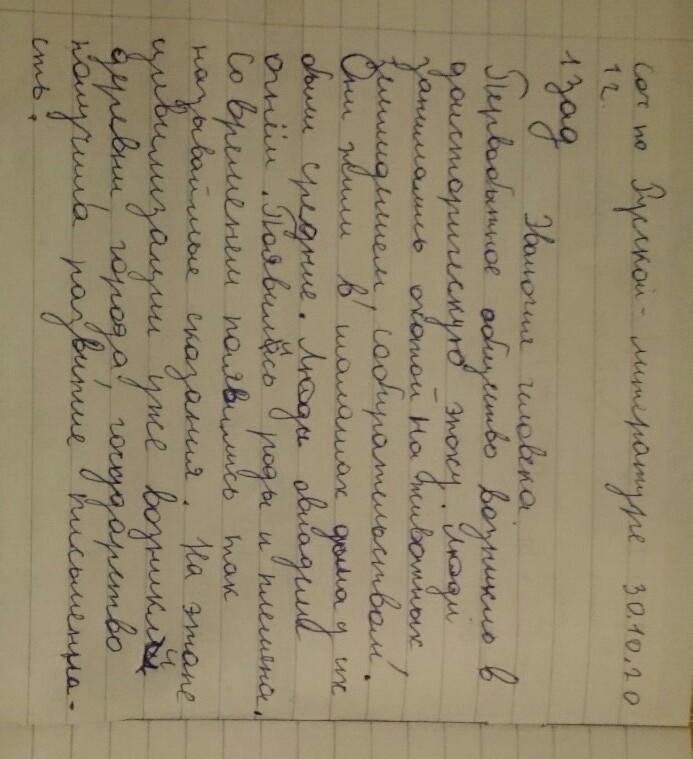 Соч по Русской-литературе 30.10.20
1г.
1 зад
Эволюция человека
Первобытное общество возникло в
доисторическую эпоху. Люди
занимались охотой на животных,
земледелием, собирательством.
Они жили в шалашах дома у их
были средние. Люди овладели
огнём. Появились роды и племена.
Со временем появились так
называймые сказания. На этапе
цивилизации уже возникли
деревни, города, государство
получила развитие письменно-
сть.